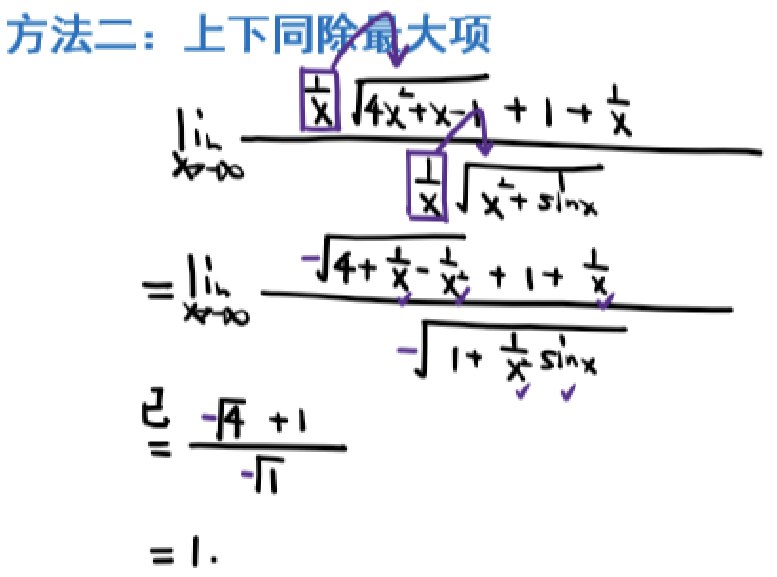 方法二：上下同除最大项
lim x→-∞ (1/x √(4x²+x-1) + 1 + 1/x) / (1/x √(x²+sinx))
= lim x→-∞ (-√(4+1/x-1/x²) + 1 + 1/x) / (-√(1+1/x² sinx))
已
= (-√4 +1) / (-√1)
= 1.